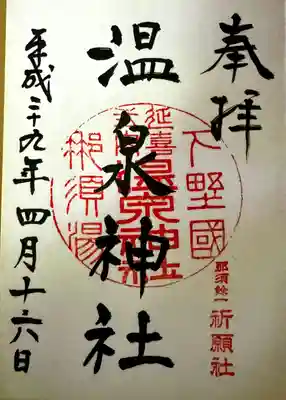 奉拝
下野國
延喜式内
温泉神社
那須湯本
温泉神社
那須餘一
祈願社
平成二十九年四月十六日